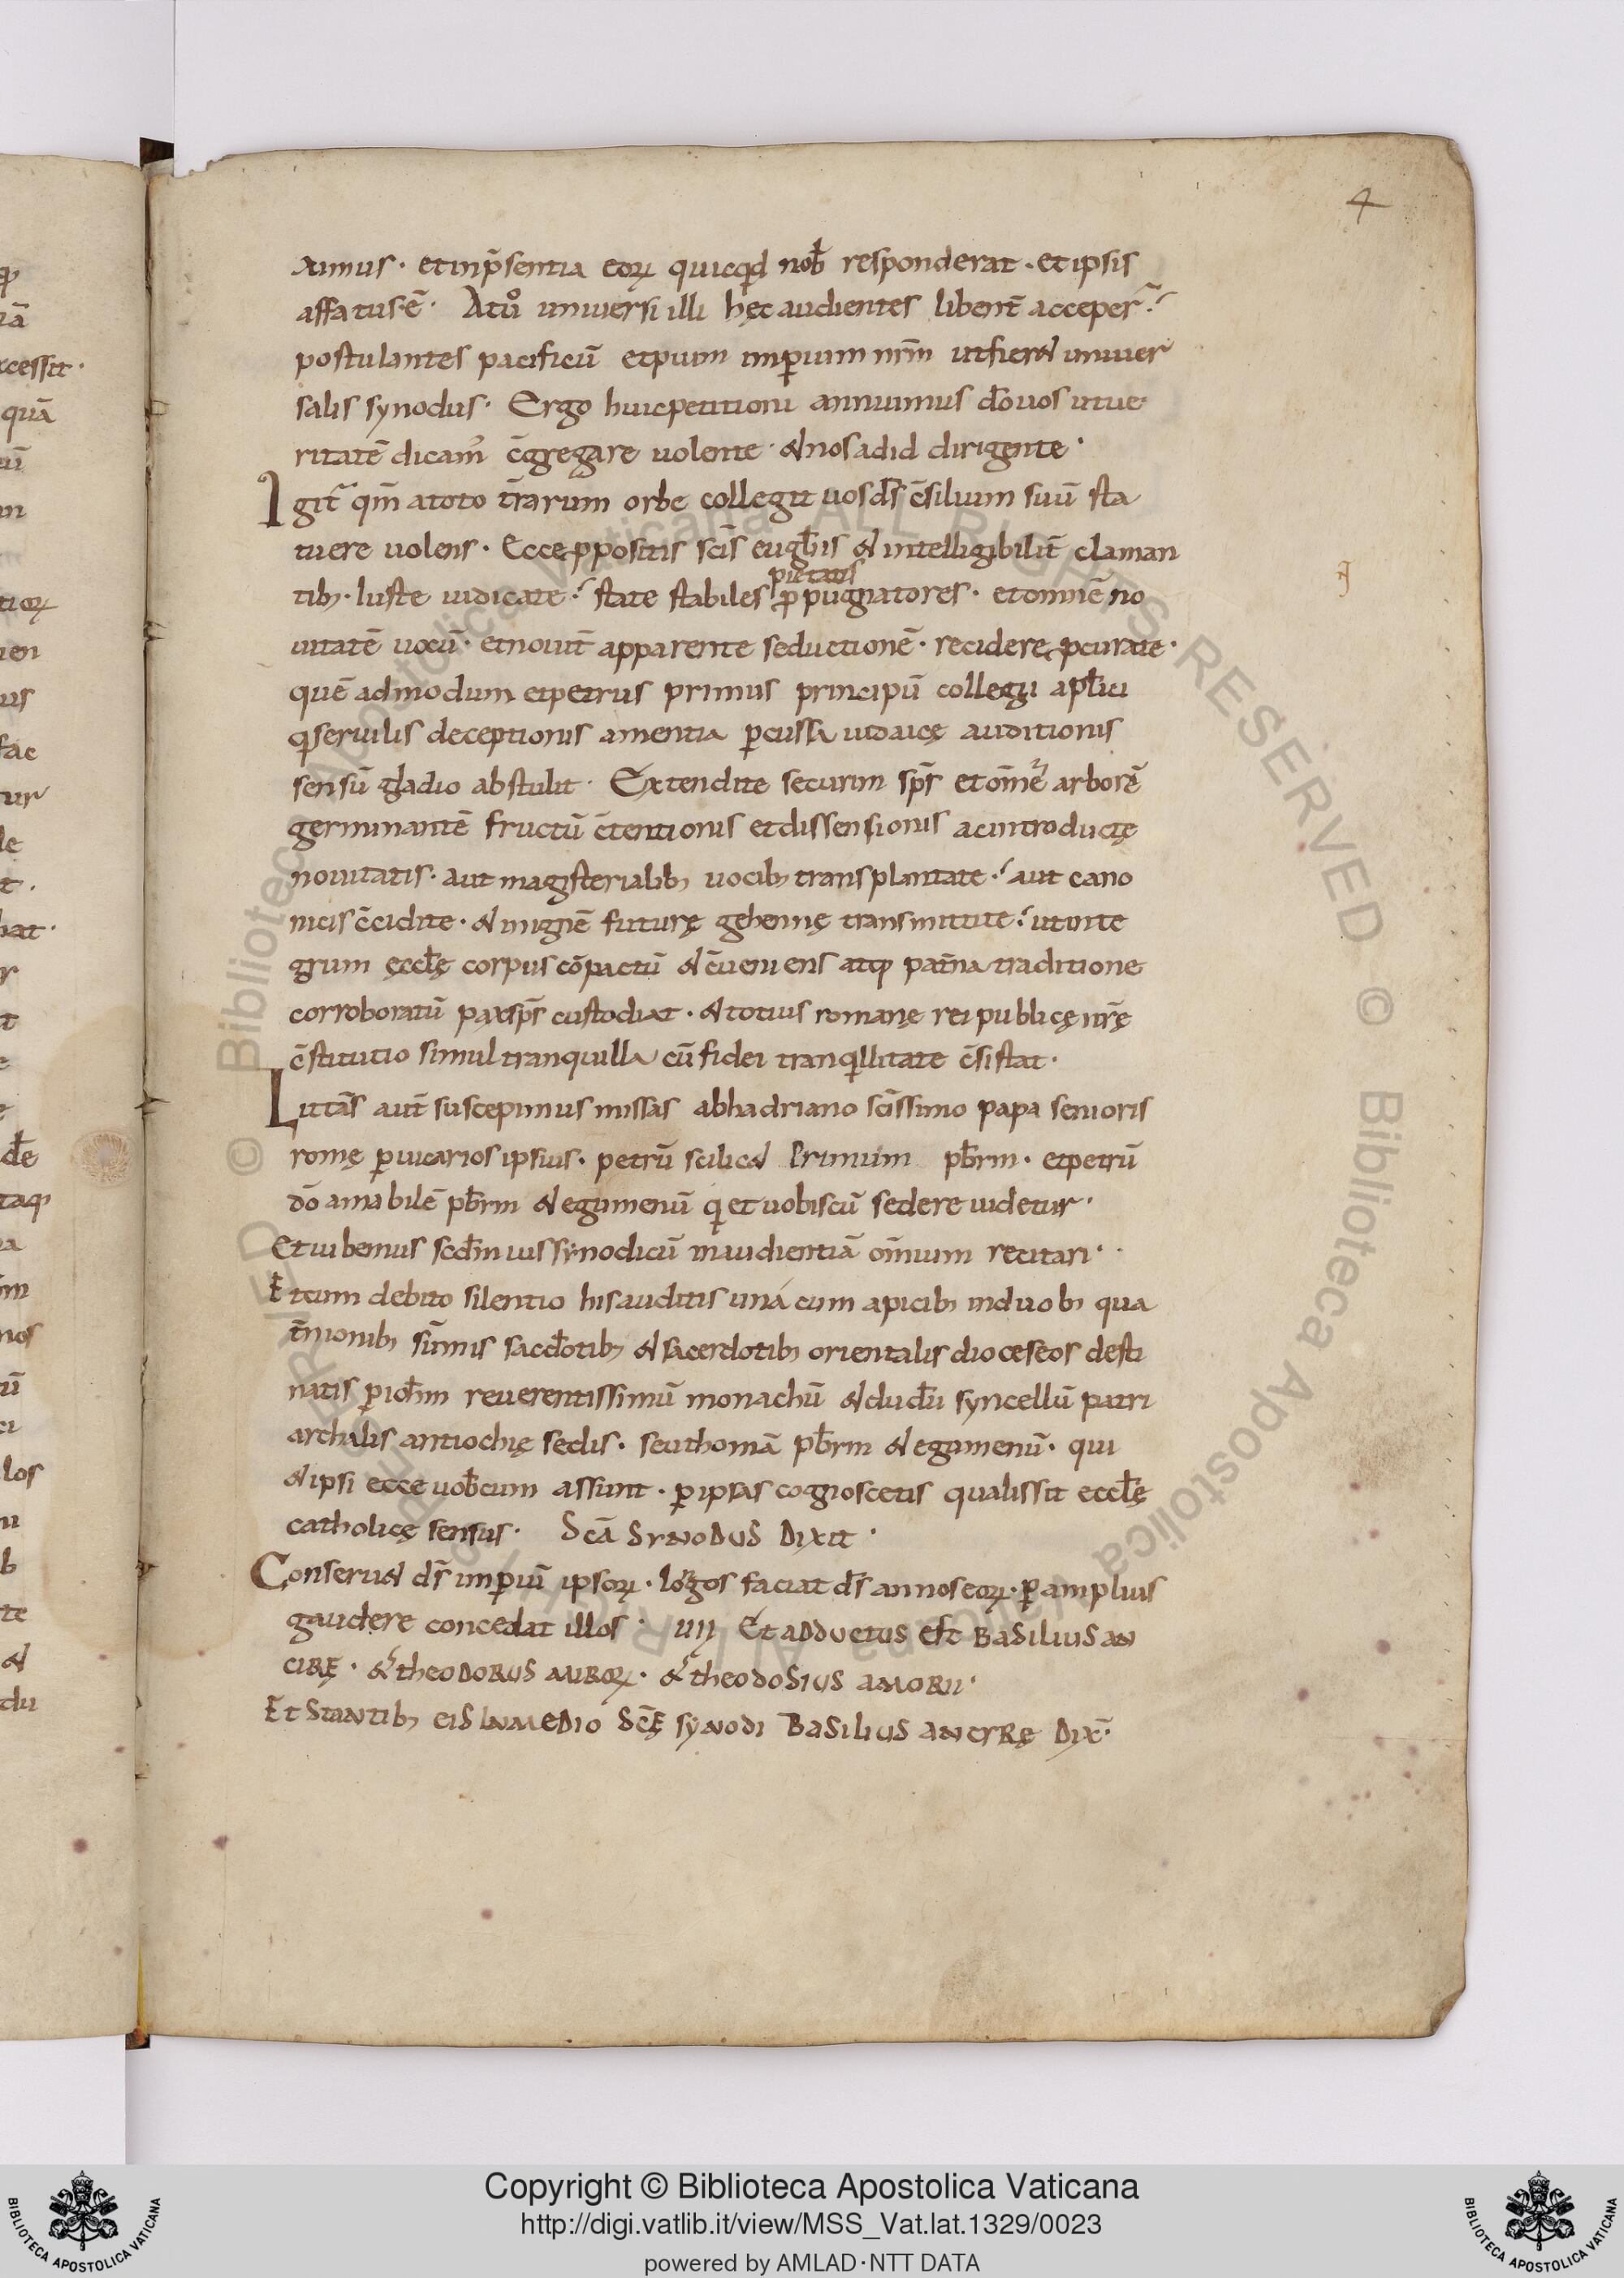 4
ximus · et inp̄sentia eoꝝ quicqͥd nob̄ responderat · et ipsis
affatus ē · At uͦ uniuersi illi hęc audientes libent̄ acceper̄
postulantes pacificū et puim imꝑium nr̄m ut fieret uniuer
salis synodus · Ergo huic petitioni annuimus dō uos ut ue
ritatē dicam̄ c̄gregare uolente · & nos ad id dirigente ·
Igit̄ qm̄ a toto t̄rarum orbe collegit uos ds̄ c̄silium suū sta
tuere uolens · Ecce ꝓpositis sc̄is eugl̄iis & intelligibilit̄ claman
tibꝫ · Iuste iudicate · state stabiles pietatis ꝓpugnatores · et omnē no
uitatē uocū · et nouit̄ apparente seductionē · recidere ꝓcurate ·
quē admodum et petrus primus principū collegii apl̄ici
qͥ seruilis deceptionis amentia ꝑcussa iudaicę auditionis
sensū gladio abstulit · Extendite securim sp̄s et om̄ē arborē
germinantē fructū c̄tentionis et dissensionis ac introductę
nouitatis · aut magisterialibꝫ uocibꝫ transplantate · aut cano
nicis c̄cidite · & in ignē futurę gehennę transmittite · ut inte
grum ęccl̄ę corpus cōpactū & c̄ueniens atqꝫ pat̄na traditione
corroboratū pax sp̄s custodiat · & totius romanę rei publicę nr̄ę
c̄stitutio simul tranquilla cū fidei tranqͥllitate c̄sistat ·
Littās aut̄ suscepimus missas ab hadriano sc̄issimo papa senioris
romę ꝑ uicarios ipsius · petrū scilicet primum pb̄rm · et petrū
dō amabilē pb̄rm & egumenū qͥ et uobiscū sedere uidetur ·
Et iubemus scd̄m ius synodicū in audientiā om̄ium recitari ·
Et cum debito silentio his auditis unā cum apicibꝫ in duobꝫ qua
t̄nionibꝫ sūmis sacd̄otibꝫ & sacerdotibꝫ orientalis dioceseos desti
natis ꝑ ioh̄m reuerentissimū monachū & dudū syncellū patri
archalis antiochię sedis · seu thomā pb̄rm & egumenū · qui
& ipsi ecce uob̄cum assunt · ꝑ ipsas cognoscetis qualis sit eccl̄ę
catholicę sensus · Scā synodus dixit ·
Conseruet ds̄ imꝑiū ipsoꝝ · longos faciat ds̄ annos eoꝝ · ꝑ amplius
gaudere concedat illos · IIII Et adductus est basilius an
cirę · & theodorus miroꝝ · & theodosius amorii ·
Et stantibꝫ eis in medio scę̄ synodi basilius ancyrę dix̄ ·
Copyright © Biblioteca Apostolica Vaticana
http://digi.vatlib.it/view/MSS_Vat.lat.1329/0023
powered by AMLAD·NTT DATA